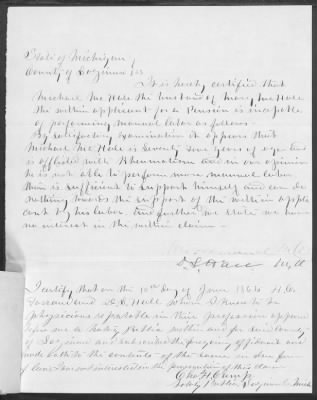 State of Michigan
County of Saginaw } ss
It is hereby certified that
Michael McHale the husband of Mary McHale
the within applicant for a Pension is incapable
of performing manual labor as follows
By satisfactory Examination it appears that
Michael McHale is Seventy four years of age and
is afflicted with Rheumatism and in our opinion
he is not able to perform more manual labor
than is sufficient to support himself and can do
nothing towards the support of the within appli
cant by his labor. And further we state we have
no interest in the within claim
D. C. Hall
I certify that on the 10th Day of June 1864 H. C.
and D. C. Hall whom I know to be
physicians reputable in their profession appeared
before me a Notary Public within and for said County
of Saginaw and subscribed the foregoing affidavit and
made oath to the contents of the same in due form
of law. I am not interested in the prosecution of this claim
Notary Public Saginaw Co. Mich